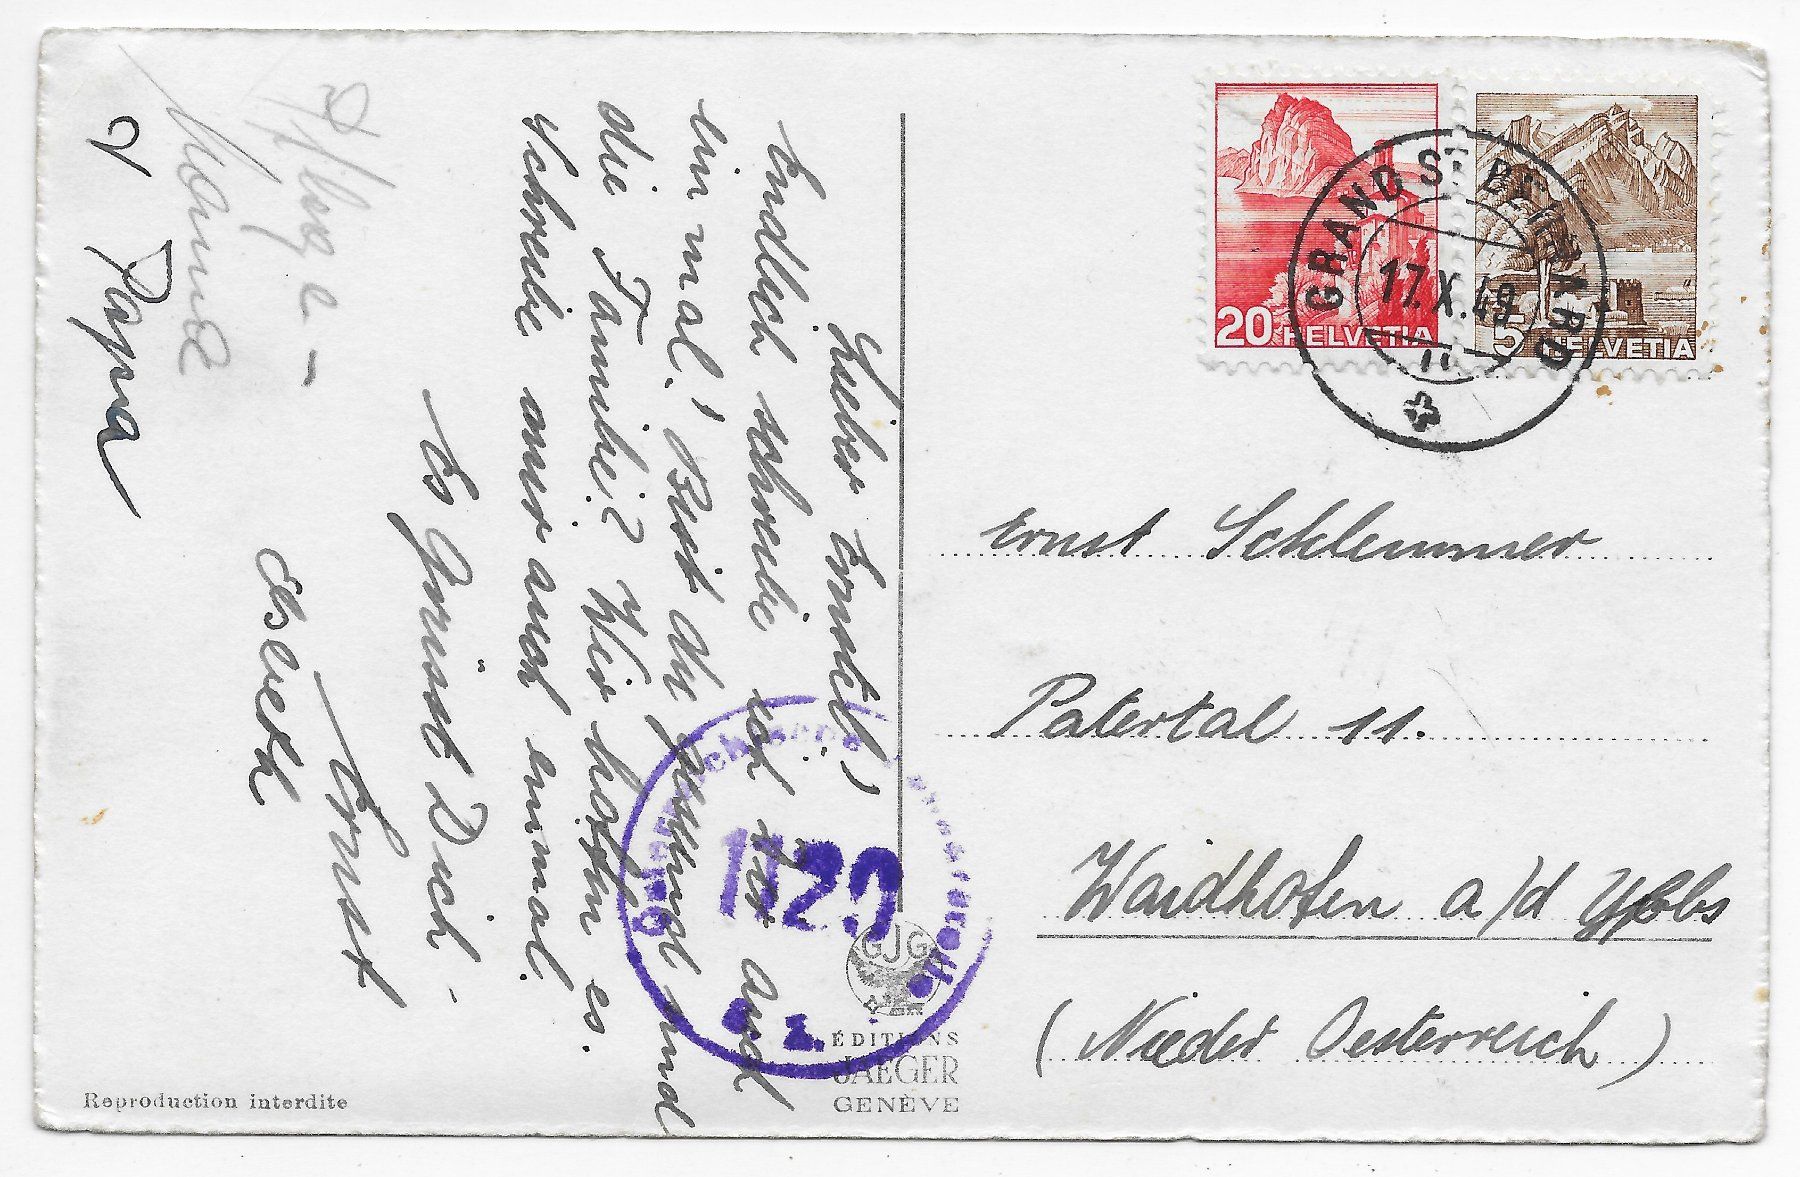 Lieber Ernstl!
Endlich schreibe ich Dir auch
einmal! Bist du gesund und
die Familie? Wir hoffen es.
Schreibe mir auch einmal.
Es grüsst Dich -
Ernst
Elsbeth
Mama
u Papa
20 HELVETIA
5 HELVETIA
GRAND ST BERNARD
17.X.49
Ernst Schlemmer
Patertal 11.
Waidhofen a/d Ybbs
(Nieder Oesterreich)
Österreichische Zensurstelle
1129
GJG
ÉDITIONS
JAEGER
GENÈVE
Reproduction interdite